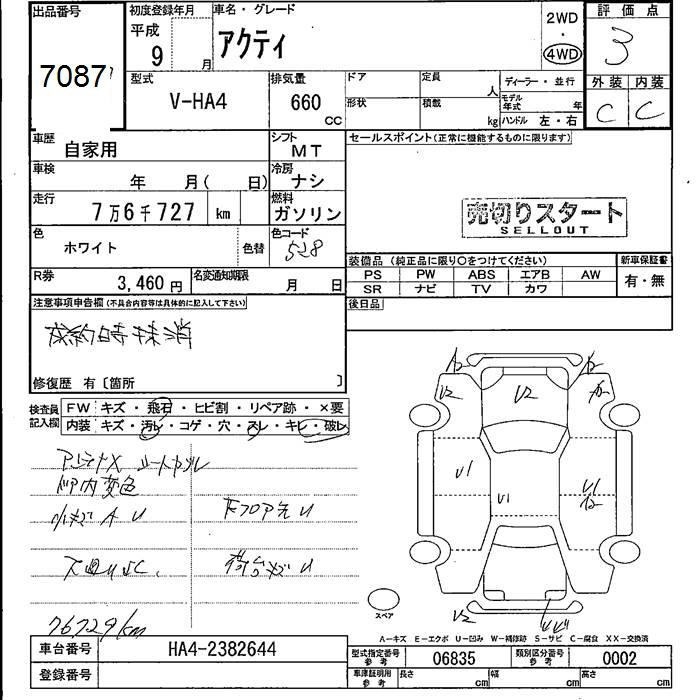 出品番号
7087
初度登録年月
平成
9 月
車名・グレード
アクティ
2WD
4WD
評価点
3
外装 内装
C C
型式
V-HA4
排気量
660
CC
ドア
形状
定員
人
積載
kg
ディーラー・並行
モデル年式 年
ハンドル 左・右
車歴
自家用
シフト
MT
車検
年 月( 日)
冷房
ナシ
走行
7万6千727 km
燃料
ガソリン
色
ホワイト
色替
色コード
528
R券
3,460 円
名変通知期限
月 日
セールスポイント(正常に機能するものに限ります)
売切りスタート
SELLOUT
装備品 (純正品に限り〇をつけてください)
PS PW ABS エアB AW
SR ナビ TV カワ
新車保証書
有・無
後日品
注意事項申告欄 (不具合内容等は具体的に記入して下さい)
成約時抹消
修復歴 有〔箇所 〕
検査員記入欄
FW キズ・飛石・ヒビ割・リペア跡・×要
内装 キズ・汚レ・コゲ・穴・スレ・キレ・破レ
ドア内変色
小キズ A U
下廻りSC.
荷台キズ U
76729km
A2
U2
U2
A2
U1
U1
U1
U2
スペア
A-キズ E-エクボ U-凹み W-補修跡 S-サビ C-腐食 XX-交換済
車台番号
HA4-2382644
登録番号
型式指定番号
参考
06835
類別区分番号
参考
0002
車庫証明用
参考
長さ cm
幅 cm
高さ cm